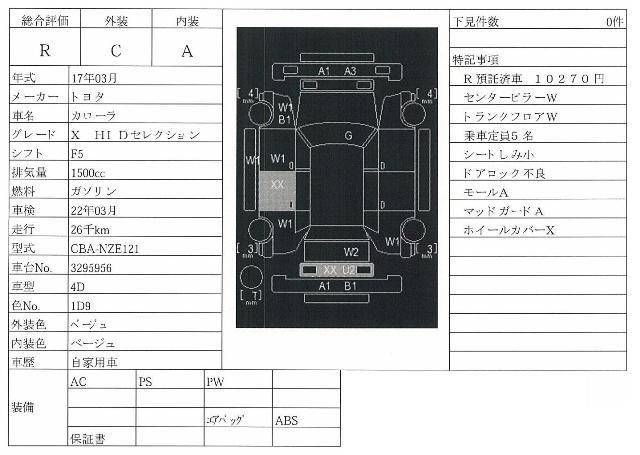 総合評価 外装 内装
R C A
年式 17年03月
メーカー トヨタ
車名 カローラ
グレード X HIDセレクション
シフト F5
排気量 1500cc
燃料 ガソリン
車検 22年03月
走行 26千km
型式 CBA-NZE121
車台No. 3295956
車型 4D
色No. 1D9
外装色 ベージュ
内装色 ベージュ
車歴 自家用車
装備
AC PS PW
エアバッグ ABS
保証書
A1 A3
[4] mm [4] mm
W1
B1
G
W1 W1
D D
XX
D D
W1
W1
[3] mm [3] mm
W2
XX U2
A1 B1
[7] mm
下見件数 0件
特記事項
R預託済車 10270円
センターピラーW
トランクフロアW
乗車定員5名
シートしみ小
ドアロック不良
モールA
マッドガードA
ホイールカバーX